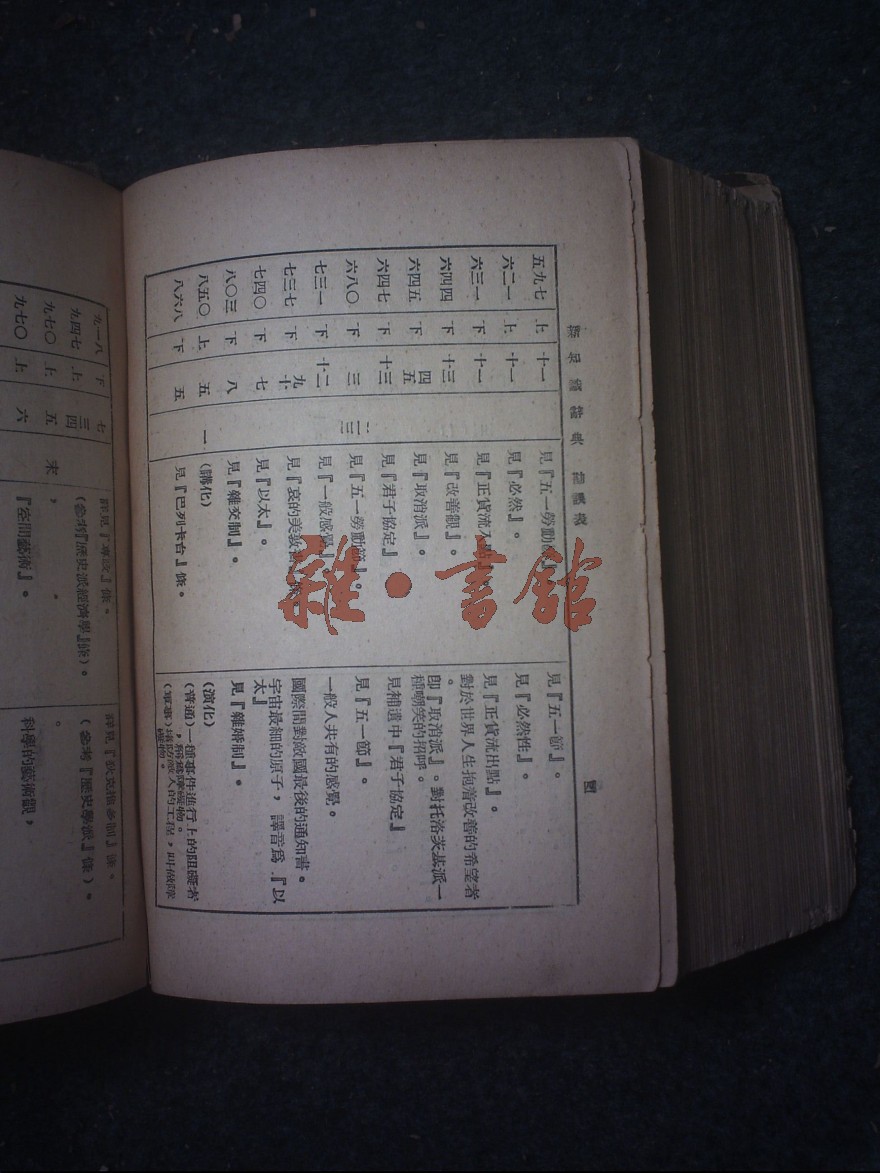 辭典
四
五九七 上 十一 見『五一勞動節』。 見『五一節』。
六二一 上 十一 見『必然』。 見『必然性』。
六三一 下 十一 見『正貨流入點』。 見『正貨流出點』。
六四四 下 十三 見『改善觀』。 對於世界人生抱着改善的希望者
。
六四五 下 四五 見『取消派』。 即『取消派』。對托洛茨基派一
種嘲笑的招呼。
六四七 下 十三 見『君子協定』 見補遺中『君子協定』
六八〇 下 三 二三 見『五一勞動節』。 見『五一節』。
七三一 下 十二 見『一般感覺』。 一般人共有的感覺。
七三七 下 九十 見『哀的美敦 國際間對敵國最後的通知書。
七四〇 下 七 見『以太』。 宇宙最細的原子，譯音爲『以
太』
八〇三 下 八 見『雜交制』。 見『雜婚制』。
八五〇 上 五 一 (講化) (演化)
八六八 下 五 見『巴列卡台』條。 (普通)一種事件進行上的阻礙者
九一八 下 七 詳見『專政』條。 詳見『狄克推多制』條。
九四七 上 三四 (參考『歷史派經濟學』條)。 (參考『歷史學派』條)。
九七〇 上 五 末 ， 。
九七〇 上 六 『空間藝術』。 科學的藝術觀，
雜·書館